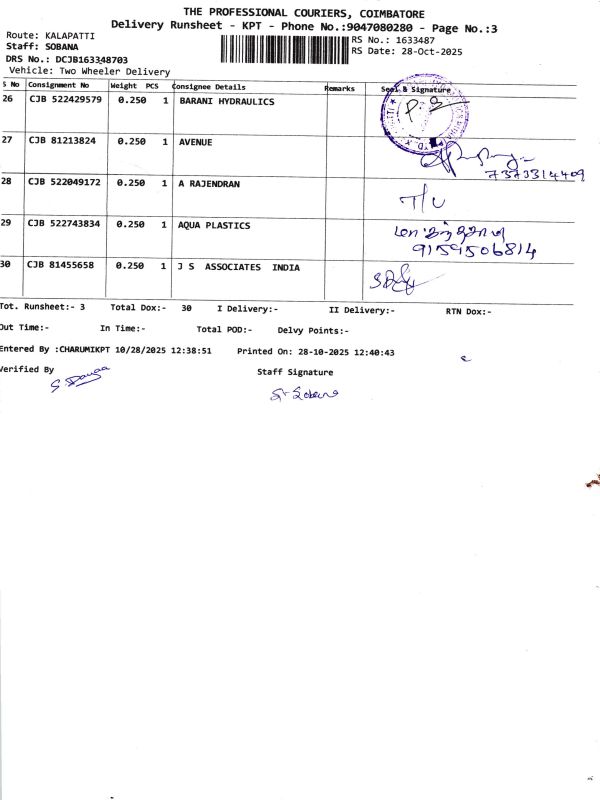 THE PROFESSIONAL COURIERS, COIMBATORE
Delivery Runsheet - KPT - Phone No.:9047080280 - Page No.:3
Route: KALAPATTI
Staff: SOBANA
DRS No.: DCJB163348703
Vehicle: Two Wheeler Delivery
RS No.: 1633487
RS Date: 28-Oct-2025
S No Consignment No Weight PCS Consignee Details Remarks Seal & Signature
26 CJB 522429579 0.250 1 BARANI HYDRAULICS P.
27 CJB 81213824 0.250 1 AVENUE
7373314409
28 CJB 522049172 0.250 1 A RAJENDRAN T/U
29 CJB 522743834 0.250 1 AQUA PLASTICS
9159506814
30 CJB 81455658 0.250 1 J S ASSOCIATES INDIA
Tot. Runsheet:- 3 Total Dox:- 30 I Delivery:- II Delivery:- RTN Dox:-
Out Time:- In Time:- Total POD:- Delvy Points:-
Entered By :CHARUMIKPT 10/28/2025 12:38:51 Printed On: 28-10-2025 12:40:43
Verified By Staff Signature